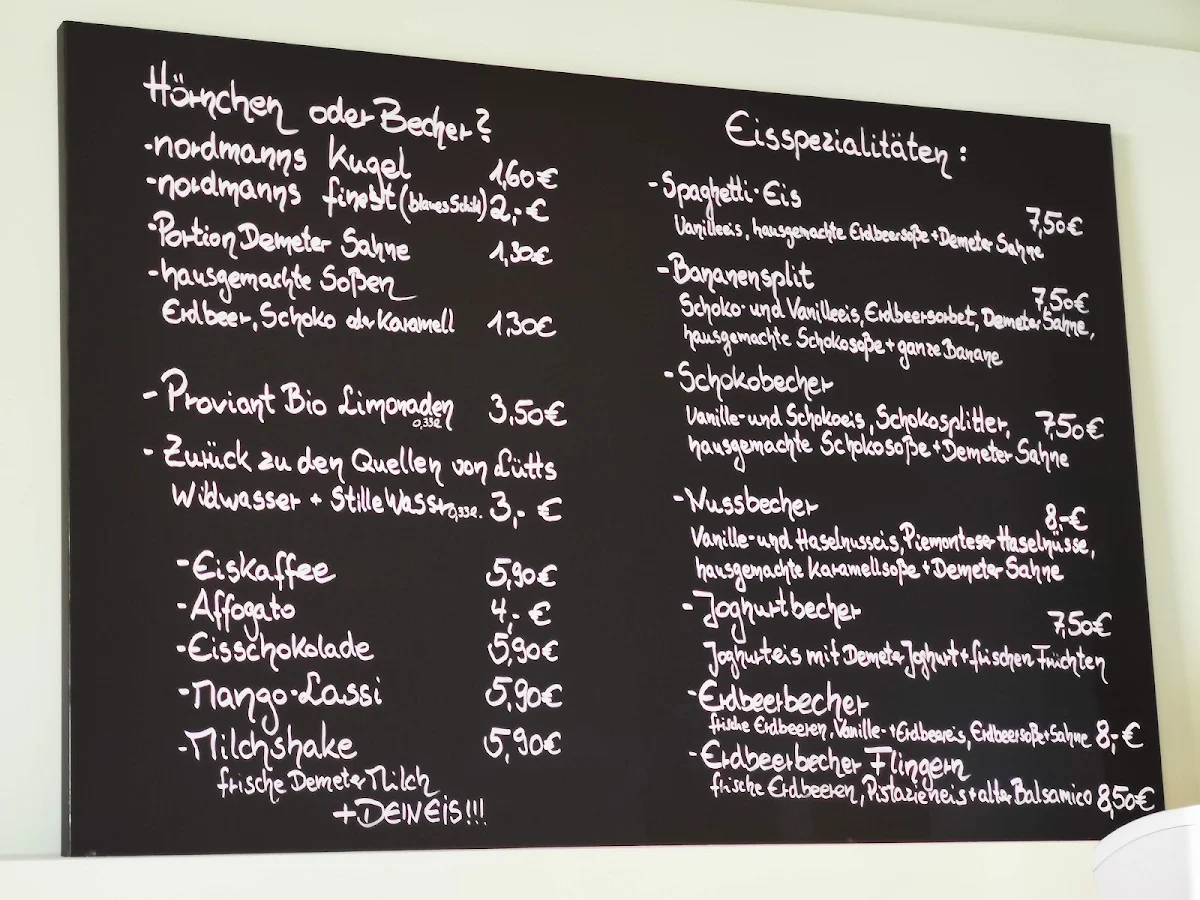 Hörnchen oder Becher?
-nordmanns Kugel 1,60€
-nordmanns finest (blaues Schild) 2,-€
-Portion Demeter Sahne 1,30€
-hausgemachte Soßen
Erdbeer, Schoko oder Karamell 1,30€
- Proviant Bio Limonaden 0,33l 3,50€
- Zurück zu den Quellen von Lütts
Wildwasser + Stille Wasser 0,33l. 3,- €
-Eiskaffee 5,90€
-Affogato 4,- €
-Eisschokolade 5,90€
-Mango-Lassi 5,90€
-Milchshake 5,90€
frische Demeter Milch
+DEIN EIS!!!
Eisspezialitäten:
-Spaghetti-Eis 7,50€
Vanilleeis, hausgemachte Erdbeersoße + Demeter Sahne
-Bananensplit 7,50€
Schoko- und Vanilleeis, Erdbeersorbet, Demeter Sahne,
hausgemachte Schokosoße + ganze Banane
-Schokobecher
Vanille- und Schokoeis, Schokosplitter, 7,50€
hausgemachte Schokosoße + Demeter Sahne
-Nussbecher 8,-€
Vanille- und Haselnusseis, Piemonteser Haselnüsse,
hausgemachte Karamellsoße + Demeter Sahne
-Joghurtbecher 7,50€
Joghurteis mit Demeter Joghurt + frischen Früchten
-Erdbeerbecher
frische Erdbeeren, Vanille- + Erdbeereis, Erdbeersoße + Sahne 8,- €
-Erdbeerbecher Flingern
frische Erdbeeren, Pistazieneis + alter Balsamico 8,50€